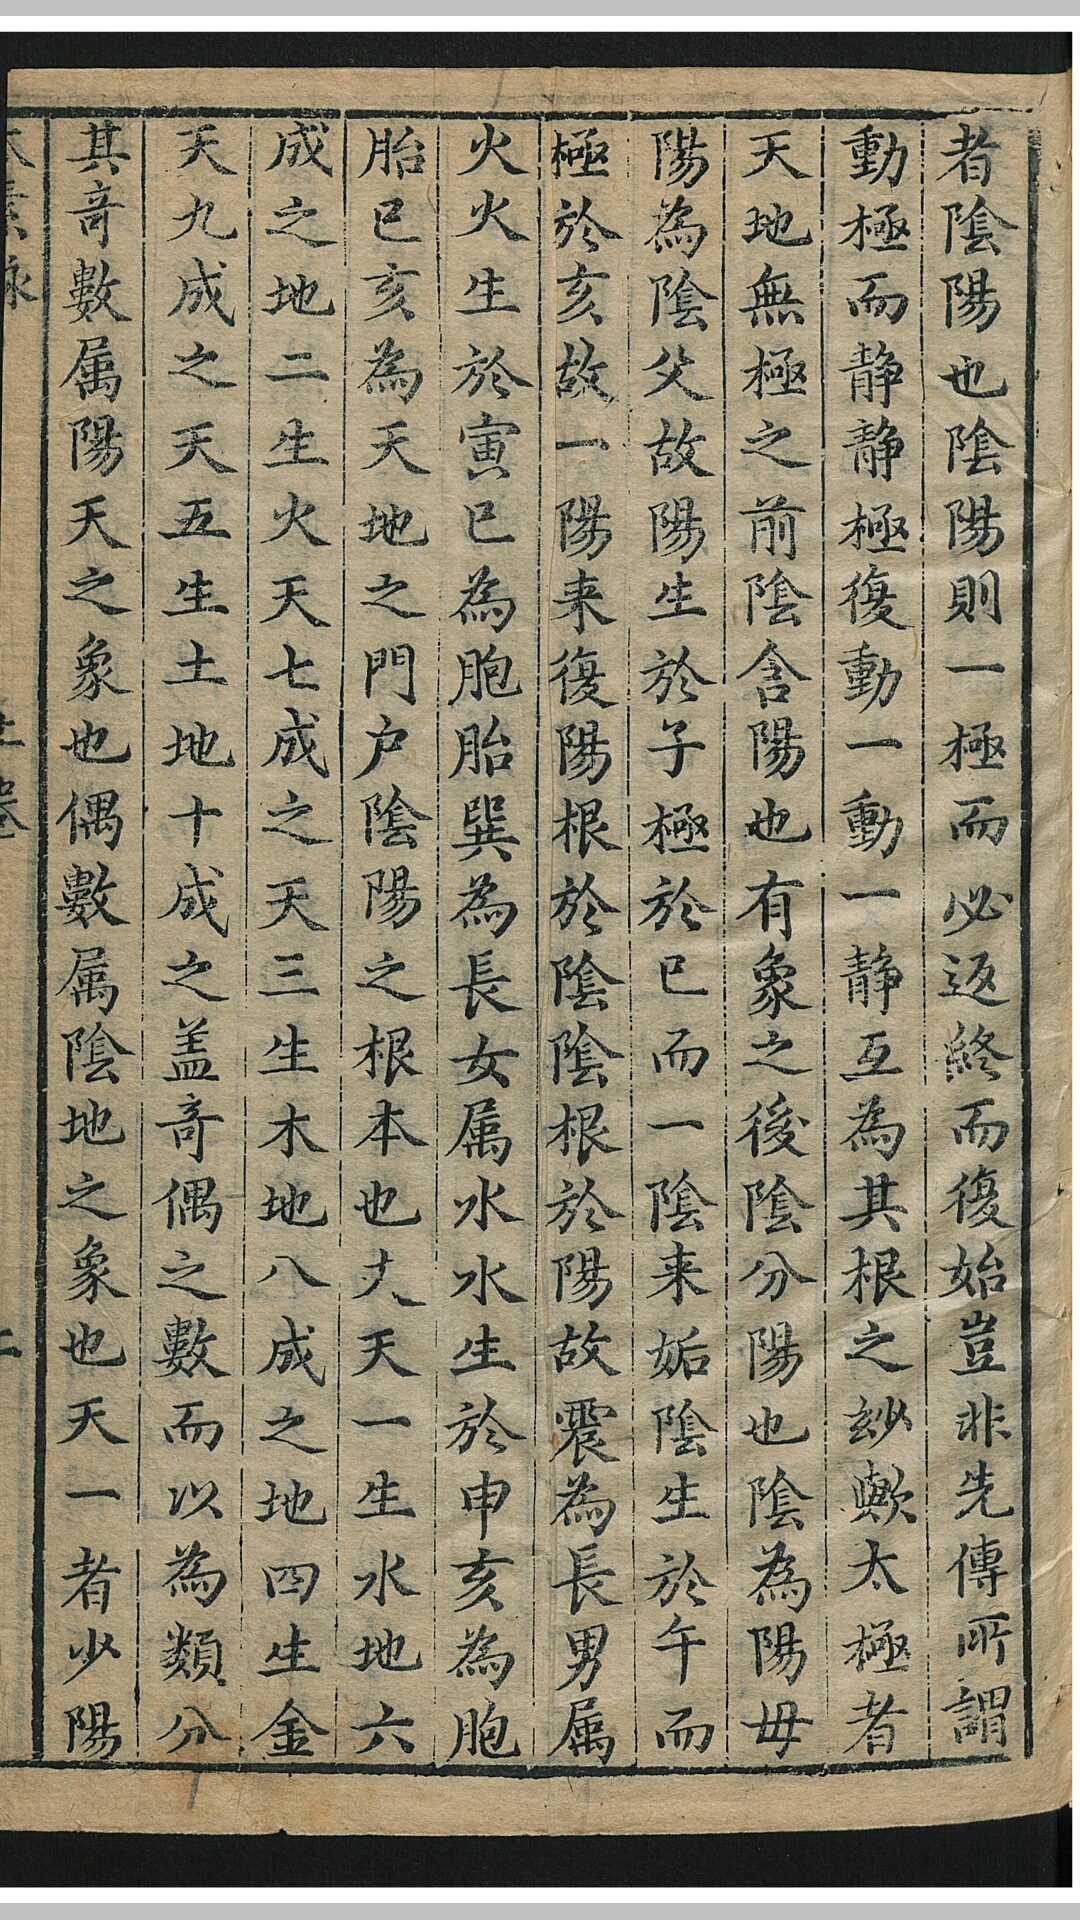 者陰陽也陰陽則一極而必返終而復始豈非先傳所謂
動極而静静極復動一動一静互為其根之玅歟太極者
天地無極之前陰含陽也有象之後陰分陽也陰為陽毋
陽為陰父故陽生於子極於巳而一陰来姤陰生於午而
極於亥故一陽来復陽根於陰陰根於陽故震為長男属
火火生於寅巳為胞胎巽為長女属水水生於申亥為胞
胎巳亥為天地之門户陰陽之根本也大天一生水地六
成之地二生火天七成之天三生木地八成之地四生金
天九成之天五生土地十成之盖竒偶之數而以為類分
其竒數属陽天之象也偶數属陰地之象也天一者少陽